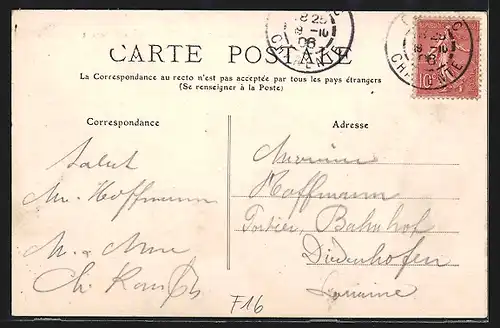 CARTE POSTALE
La Correspondance au recto n'est pas acceptée par tous les pays étrangers
(Se renseigner à la Poste)
Correspondance
Adresse
Salut
Mr. Hoffmann
M. & Mme
Ch.
Monsieur
Hoffmann
Portier, Bahnhof
Diedenhofen
Lorraine
F16
8 25
18 -10
06
CHARENTE
8 25
18 -10
06
CHARENTE
10